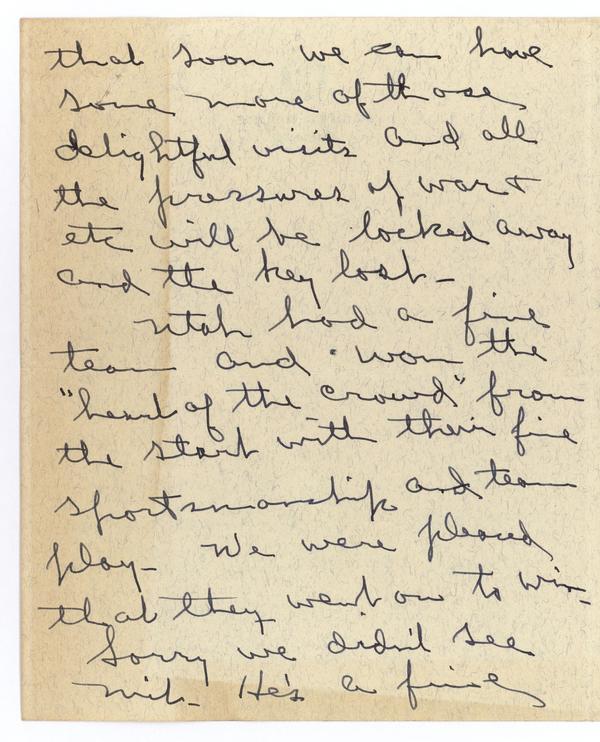 that soon we can have
some more of those
delightful visits and all
the pressures of war &
etc will be locked away
and the key lost —
Utah had a fine
team and won the
"heart of the crowd" from
the start with their fine
sportsmanship and team
play — We were pleased
that they went on to win —
Sorry we didn't see
Milt — He's a fine